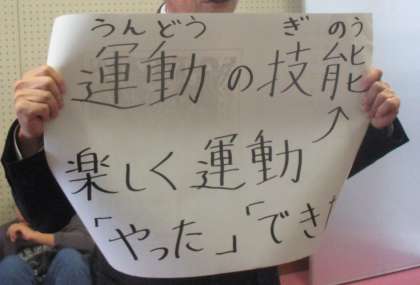 うんどう ぎのう
運動の技能
楽しく運動
「やった」「でき